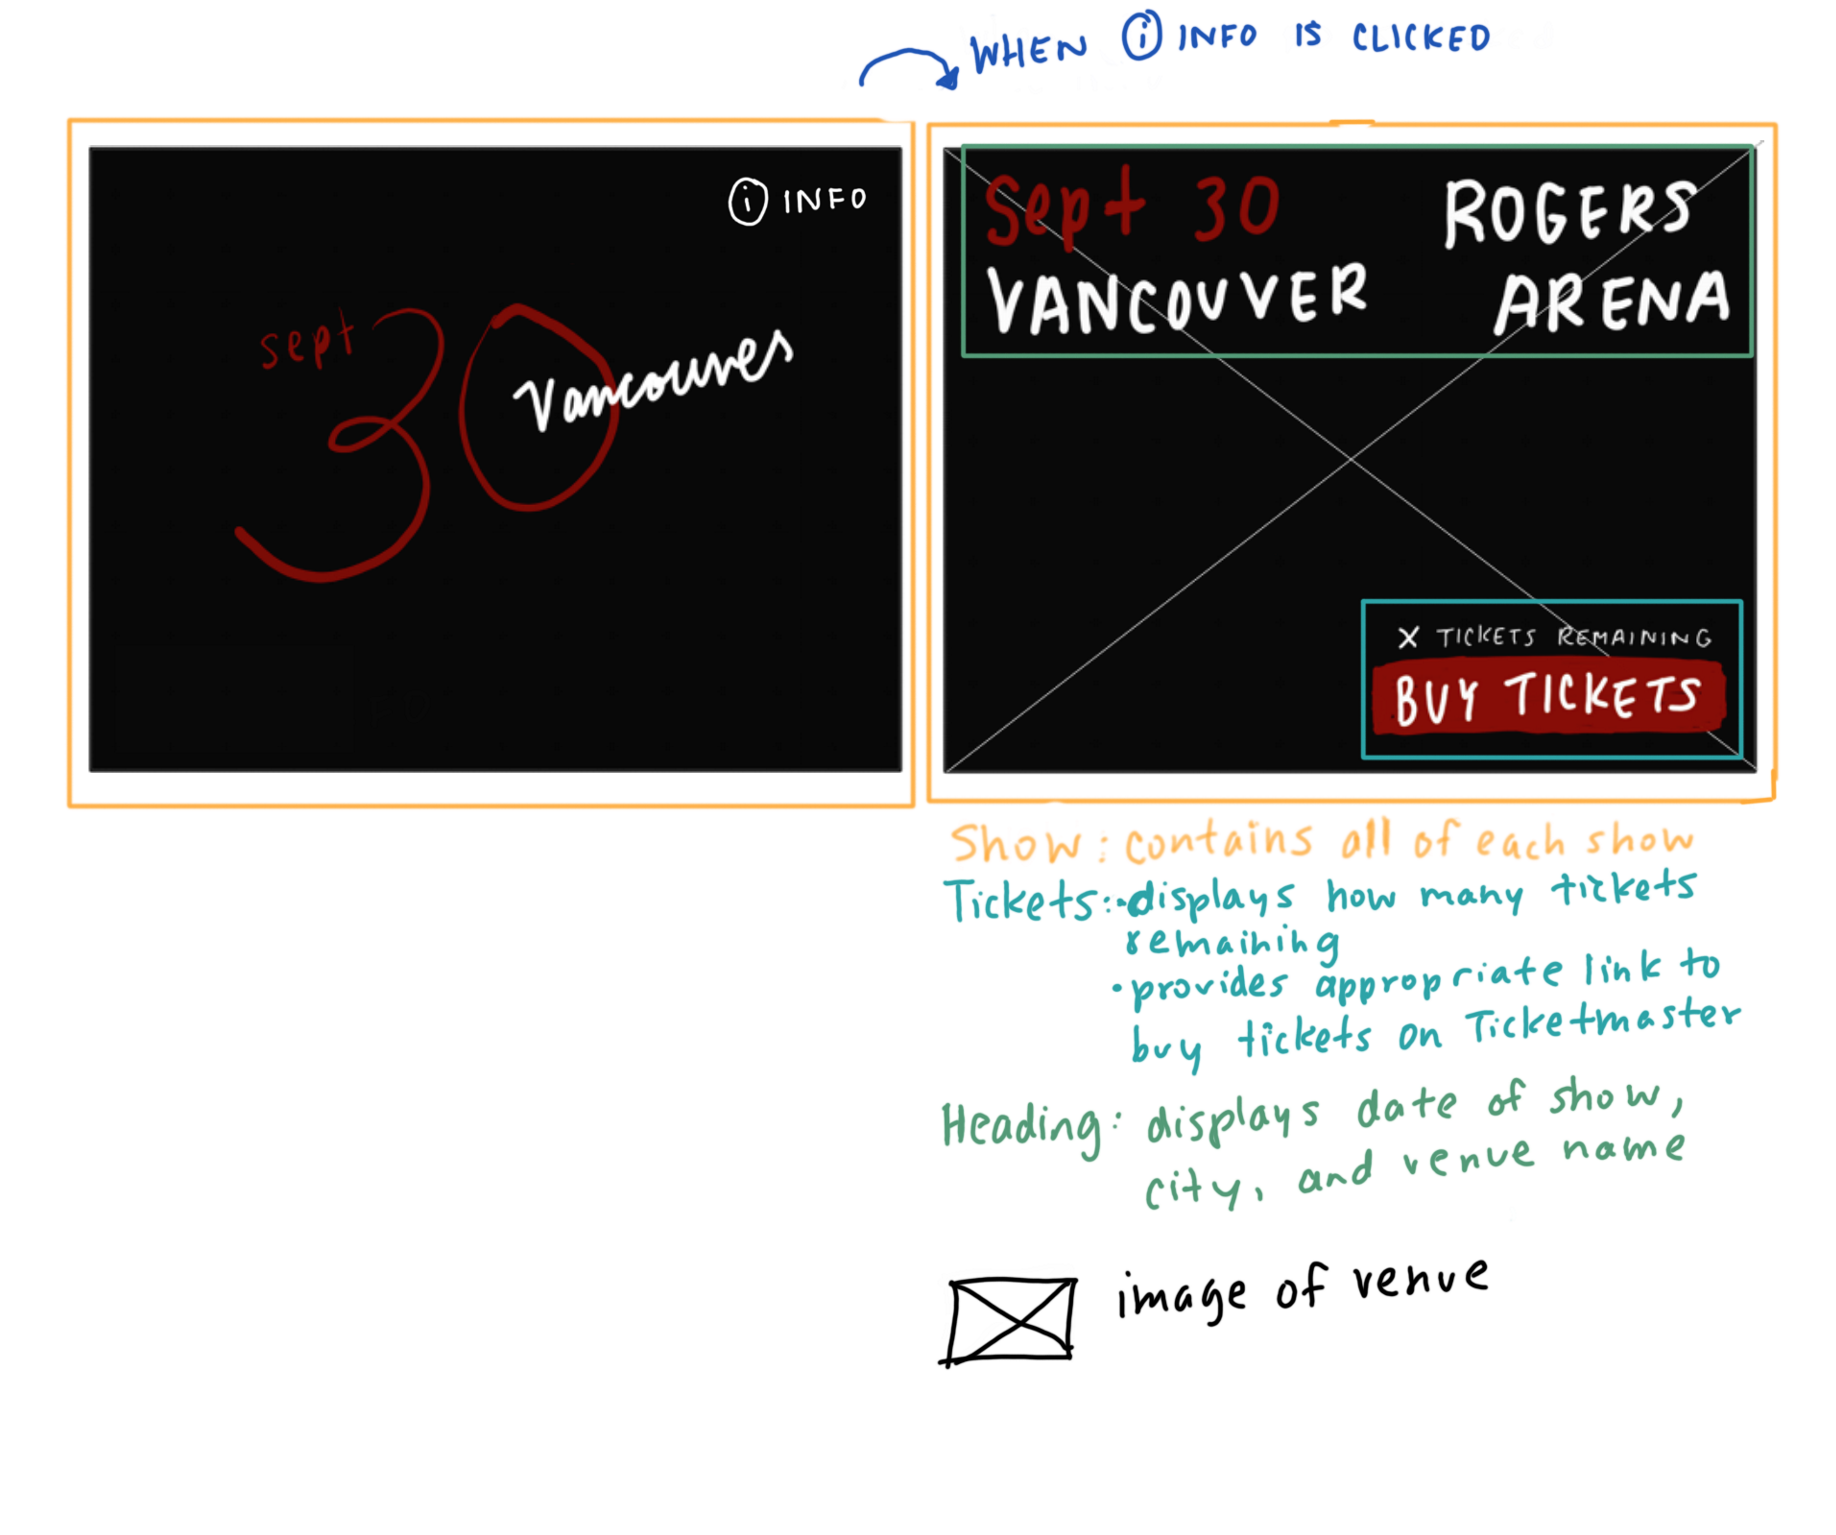 WHEN ⓘ INFO IS CLICKED
ⓘ INFO
sept
30
Vancouver
Sept 30
VANCOUVER
ROGERS
ARENA
X TICKETS REMAINING
BUY TICKETS
Show: contains all of each show
Tickets: •displays how many tickets
remaining
• provides appropriate link to
buy tickets on Ticketmaster
Heading: displays date of show,
city, and venue name
image of venue